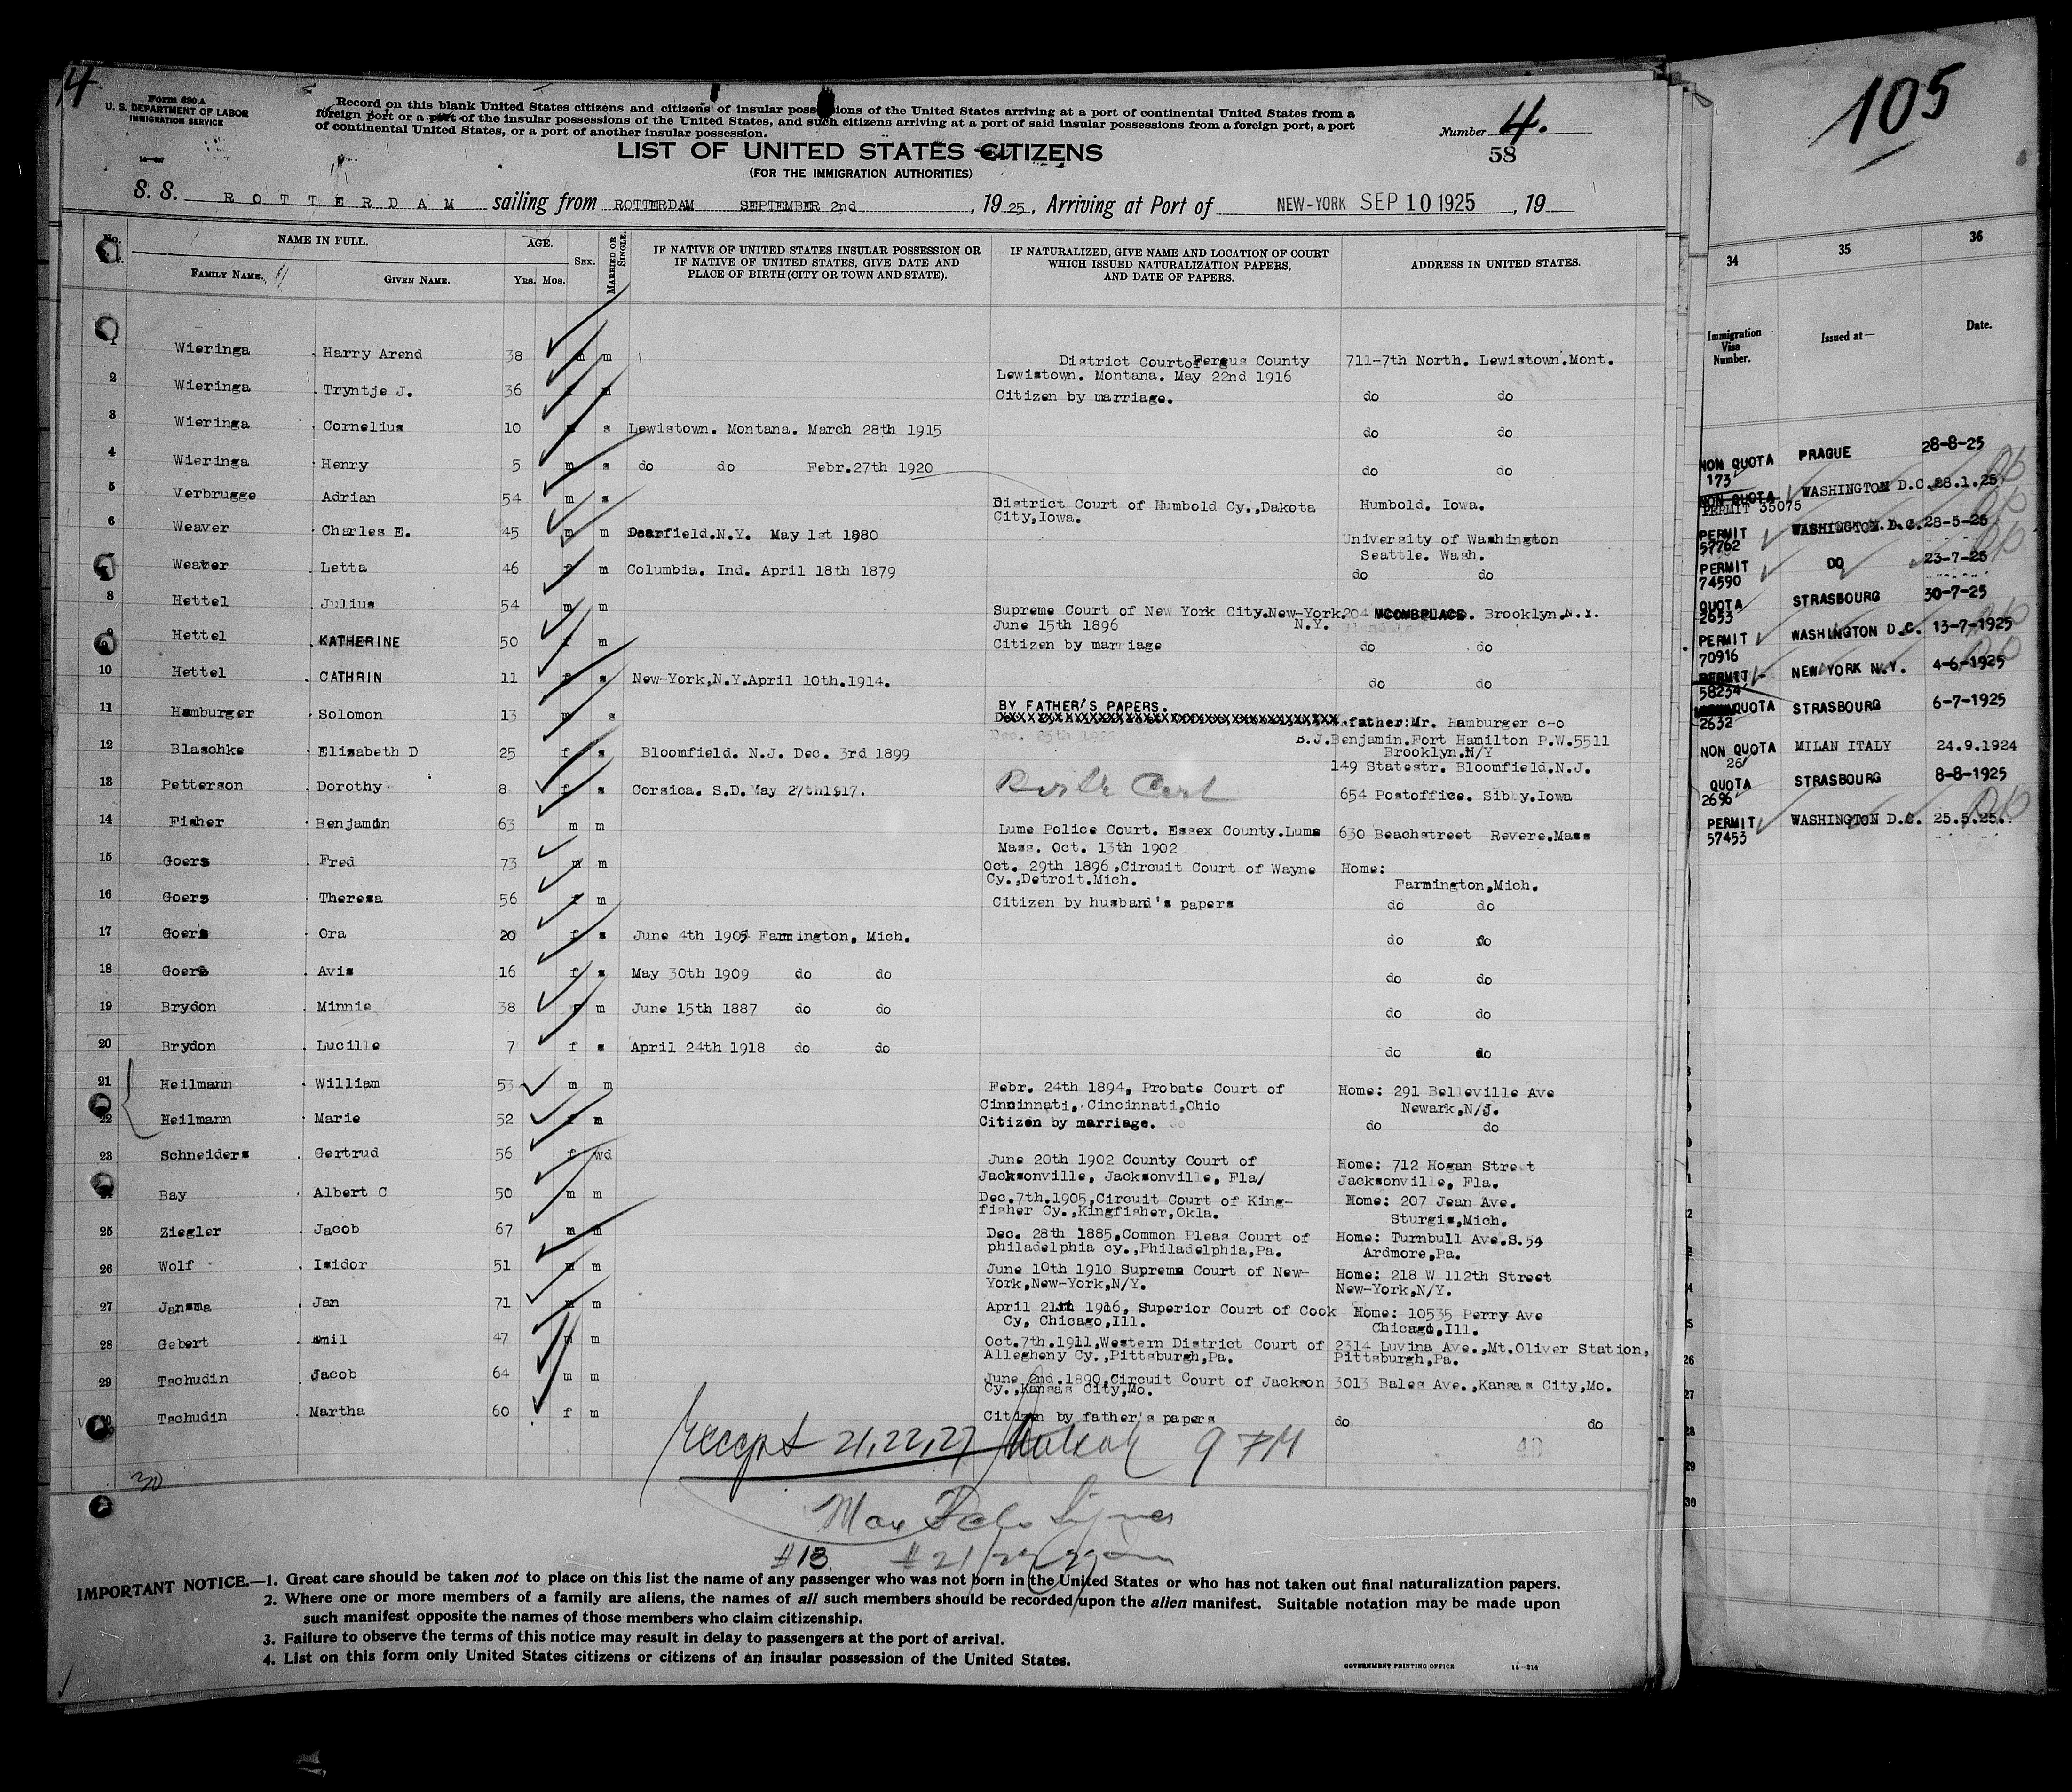 14
Form 630 A
U. S. DEPARTMENT OF LABOR
IMMIGRATION SERVICE
Record on this blank United States citizens and citizens of insular possessions of the United States arriving at a port of continental United States from a
foreign port or a port of the insular possessions of the United States, and such citizens arriving at a port of said insular possessions from a foreign port, a port
of continental United States, or a port of another insular possession.
Number 4.
58
LIST OF UNITED STATES CITIZENS
(FOR THE IMMIGRATION AUTHORITIES)
S. S. ROTTERDAM sailing from ROTTERDAM SEPTEMBER 2nd, 1925, Arriving at Port of NEW-YORK SEP 10 1925, 19
No. NAME IN FULL. AGE. SEX. MARRIED OR SINGLE. IF NATIVE OF UNITED STATES INSULAR POSSESSION OR IF NATIVE OF UNITED STATES, GIVE DATE AND PLACE OF BIRTH (CITY OR TOWN AND STATE). IF NATURALIZED, GIVE NAME AND LOCATION OF COURT WHICH ISSUED NATURALIZATION PAPERS, AND DATE OF PAPERS. ADDRESS IN UNITED STATES.
FAMILY NAME. GIVEN NAME. YRS. MOS.
1 Wieringa Harry Arend 38 m m District Court of Fergus County 711-7th North. Lewistown.Mont.
Lewistown. Montana. May 22nd 1916
2 Wieringa Tryntje J. 36 f m Citizen by marriage. do do
3 Wieringa Cornelius 10 m s Lewistown. Montana. March 28th 1915 do do
4 Wieringa Henry 5 m s do do Febr.27th 1920 do do
5 Verbrugge Adrian 54 m s District Court of Humbold Cy.,Dakota Humbold. Iowa.
City,Iowa.
6 Weaver Charles E. 45 m m Dearfield.N.Y. May 1st 1880 University of Washington
Seattle. Wash.
7 Weaver Letta 46 f m Columbia. Ind. April 18th 1879 do do
8 Hettel Julius 54 m m Supreme Court of New York City.New-York. 204 MCOMBPLACE. Brooklyn.N.Y.
June 15th 1896 N.Y.
9 Hettel KATHERINE 50 f m Citizen by marriage do do
10 Hettel CATHRIN 11 f s New-York,N.Y.April 10th.1914. do do
11 Hamburger Solomon 13 m s BY FATHER'S PAPERS. father:Mr. Hamburger c-o
B.J.Benjamin.Fort Hamilton P.W.5511
Brooklyn.N/Y
12 Blaschke Elisabeth D 25 f s Bloomfield. N.J. Dec. 3rd 1899 149 Statestr. Bloomfield.N.J.
13 Petterson Dorothy 8 f s Corsica. S.D. May 27th1917. 654 Postoffice. Sibby.Iowa
14 Fisher Benjamin 63 m m Lume Police Court. Essex County.Lums 630 Beachstreet Revere.Mass
Mass. Oct. 13th 1902
15 Goers Fred 73 m m Oct. 29th 1896,Circuit Court of Wayne Home:
Cy.,Detroit.Mich. Farmington,Mich.
16 Goers Theresa 56 f m Citizen by husband's papers do do
17 Goers Ora 20 f s June 4th 1905 Farmington, Mich. do do
18 Goers Avis 16 f s May 30th 1909 do do do do
19 Brydon Minnie 38 f m June 15th 1887 do do do do
20 Brydon Lucille 7 f s April 24th 1918 do do do do
21 Heilmann William 53 m m Febr. 24th 1894, Probate Court of Home: 291 Belleville Ave
Cincinnati, Cincinnati,Ohio Newark,N/J.
22 Heilmann Marie 52 f m Citizen by marriage. do do
23 Schneiders Gertrud 56 f wd June 20th 1902 County Court of Home: 712 Hogan Street
Jacksonville, Jacksonville, Fla/ Jacksonville, Fla.
24 Bay Albert C 50 m m Dec.7th.1905,Circuit Court of King- Home: 207 Jean Ave.
fisher Cy.,Kingfisher,Okla. Sturgis,Mich.
25 Ziegler Jacob 67 m m Dec. 28th 1885,Common Pleas Court of Home: Turnbull Ave.S.54
philadelphia cy.,Philadelphia,Pa. Ardmore,Pa.
26 Wolf Isidor 51 m m June 10th 1910 Supreme Court of New- Home: 218 W 112th Street
York,New-York,N/Y. New-York,N/Y.
27 Jansma Jan 71 m m April 21th 1916, Superior Court of Cook Home: 10535 Perry Ave
Cy, Chicago,Ill. Chicago,Ill.
28 Gebert Emil 47 m m Oct.7th.1911,Western District Court of 2314 Luvina Ave.,Mt.Oliver Station,
Allegheny Cy.,Pittsburgh,Pa. Pittsburgh,Pa.
29 Tschudin Jacob 64 m m June 2nd.1890,Circuit Court of Jackson 3013 Bales Ave.,Kansas City,Mo.
Cy.,Kansas City,Mo.
30 Tschudin Martha 60 f m Citizen by father's papers do do
Except 21,22,27
30
#13 #21/22/27
IMPORTANT NOTICE.—1. Great care should be taken not to place on this list the name of any passenger who was not born in the United States or who has not taken out final naturalization papers.
2. Where one or more members of a family are aliens, the names of all such members should be recorded upon the alien manifest. Suitable notation may be made upon
such manifest opposite the names of those members who claim citizenship.
3. Failure to observe the terms of this notice may result in delay to passengers at the port of arrival.
4. List on this form only United States citizens or citizens of an insular possession of the United States.
GOVERNMENT PRINTING OFFICE 14—214
105
34 35 36
Immigration Visa Number. Issued at— Date.
NON QUOTA 173 PRAGUE 28-8-25
NON QUOTA PERMIT 35075 WASHINGTON D.C. 28.1.25
PERMIT 57762 WASHINGTON.D.C. 28-5-25
PERMIT 74590 DO 23-7-25
QUOTA 2653 STRASBOURG 30-7-25
PERMIT 70916 WASHINGTON D.C. 13-7-1925
PERMIT 58234 NEW YORK N.Y. 4-6-1925
QUOTA 2632 STRASBOURG 6-7-1925
NON QUOTA 26 MILAN ITALY 24.9.1924
QUOTA 2696 STRASBOURG 8-8-1925
PERMIT 57453 WASHINGTON D.C. 25.5.25.